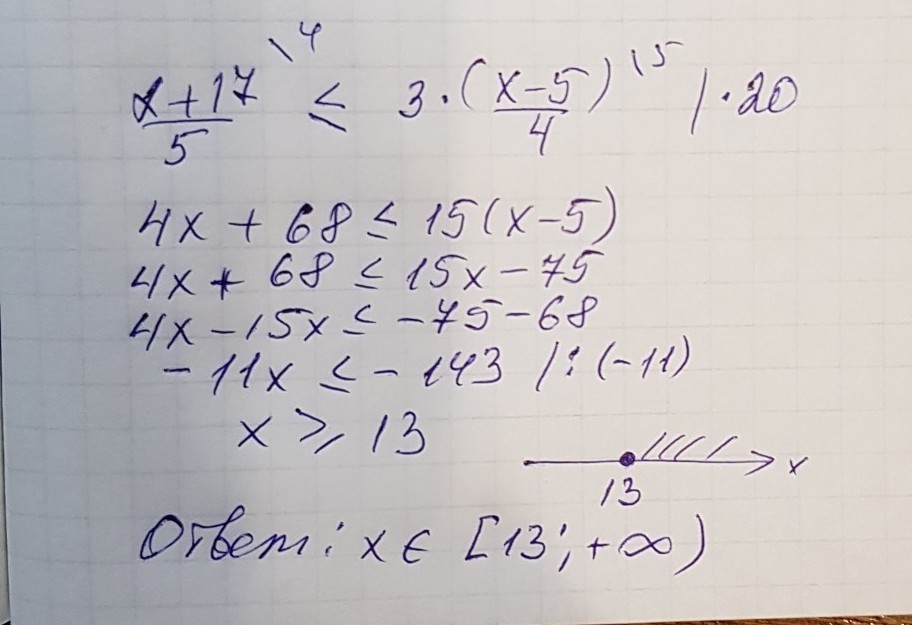 \4
x+17/5 ≤ 3·(x-5/4) \5 |·20
4x + 68 ≤ 15(x-5)
4x + 68 ≤ 15x - 75
4x - 15x ≤ -75 - 68
-11x ≤ -143 |:(-11)
x ≥ 13
x
13
Ответ: x ∈ [13; +∞)